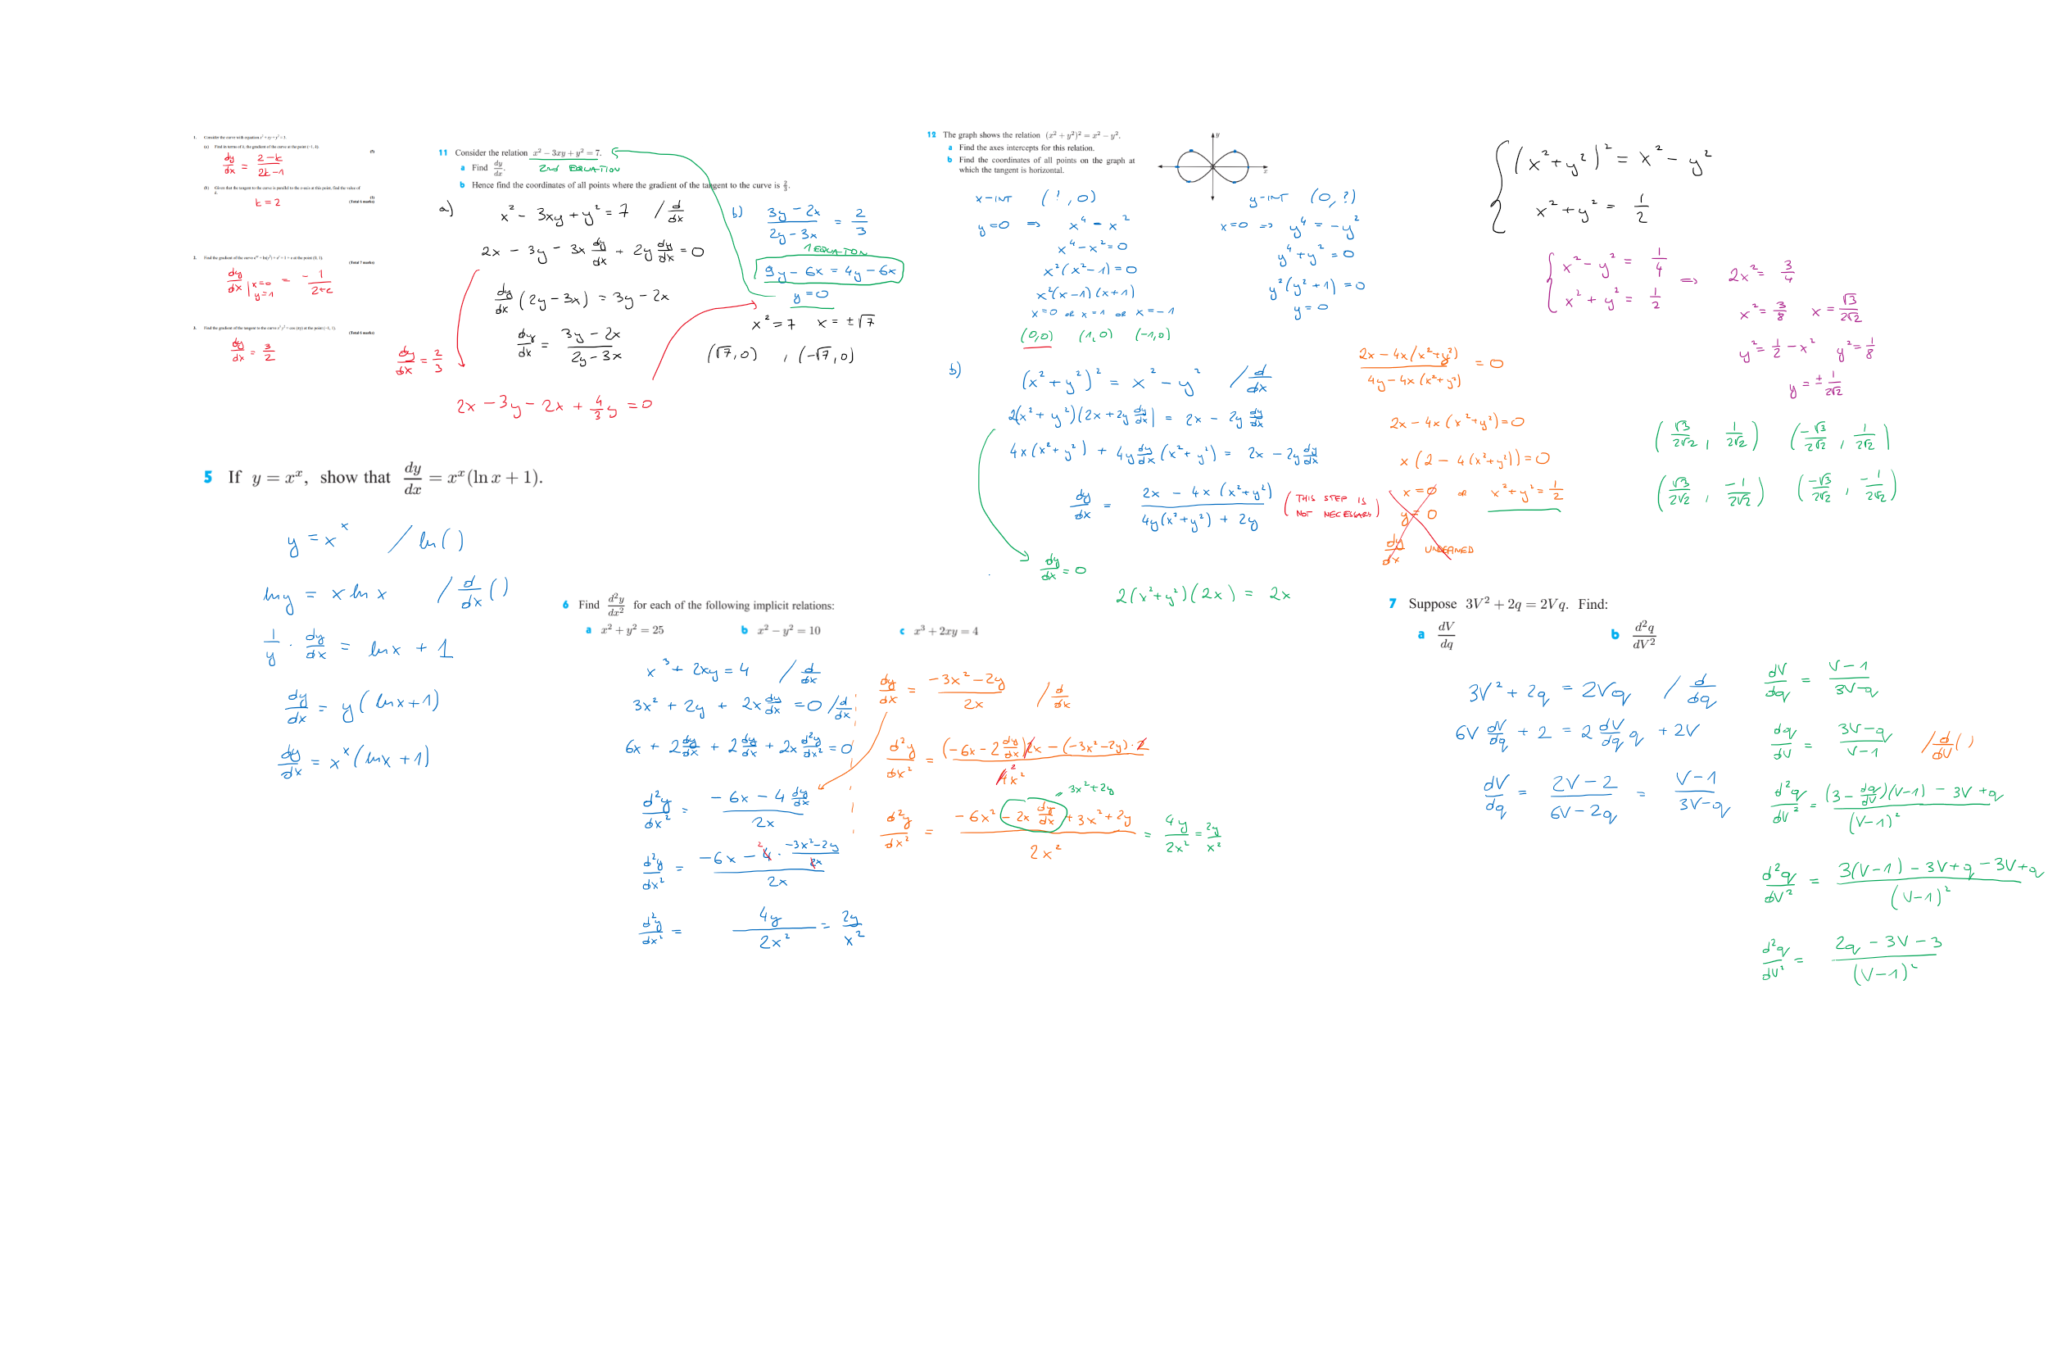 1. Consider the curve with equation x² + xy + y² = 3.
(a) Find in terms of k, the gradient of the curve at the point (−1, k).
(5)
dy/dx = (2−k)/(2k−1)
(b) Given that the tangent to the curve is parallel to the x-axis at this point, find the value of k.
(1)
(Total 6 marks)
k = 2
(Total 7 marks)
dy/dx | x=0 y=1 = − 1/(2+e)
dy/dx = 3/2
11 Consider the relation x² − 3xy + y² = 7.
2ND EQUATION
a Find dy/dx.
b Hence find the coordinates of all points where the gradient of the tangent to the curve is 2/3.
a) x² − 3xy + y² = 7 / d/dx
2x − 3y − 3x dy/dx + 2y dy/dx = 0
dy/dx (2y − 3x) = 3y − 2x
dy/dx = (3y − 2x)/(2y − 3x)
dy/dx = 2/3
2x − 3y − 2x + 4/3 y = 0
b) (3y − 2x)/(2y − 3x) = 2/3
1 EQUATION
9y − 6x = 4y − 6x
y = 0
x² = 7 x = ±√7
(√7, 0) , (−√7, 0)
12 The graph shows the relation (x² + y²)² = x² − y².
a Find the axes intercepts for this relation.
b Find the coordinates of all points on the graph at
which the tangent is horizontal.
y
x
x−INT (?, 0)
y=0 ⇒ x⁴ = x²
x⁴ − x² = 0
x²(x² − 1) = 0
x²(x − 1)(x + 1)
x=0 or x=1 or x=−1
(0,0) (1,0) (−1,0)
y−INT (0, ?)
x=0 ⇒ y⁴ = −y²
y⁴ + y² = 0
y²(y² + 1) = 0
y = 0
b) (x² + y²)² = x² − y² / d/dx
2(x² + y²)(2x + 2y dy/dx) = 2x − 2y dy/dx
4x(x² + y²) + 4y dy/dx (x² + y²) = 2x − 2y dy/dx
dy/dx = (2x − 4x(x² + y²))/(4y(x² + y²) + 2y)
(THIS STEP IS
NOT NECESSARY)
dy/dx = 0
2(x² + y²)(2x) = 2x
(2x − 4x(x² + y²))/(4y − 4x(x² + y²)) = 0
2x − 4x(x² + y²) = 0
x(2 − 4(x² + y²)) = 0
x = 0 or x² + y² = 1/2
y = 0
dy/dx UNDEFINED
(x² + y²)² = x² − y²
x² + y² = 1/2
x² − y² = 1/4
x² + y² = 1/2
⇒ 2x² = 3/4
x² = 3/8 x = √3/2√2
y² = 1/2 − x² y² = 1/8
y = ± 1/2√2
(√3/2√2, 1/2√2) (−√3/2√2, 1/2√2)
(√3/2√2, −1/2√2) (−√3/2√2, −1/2√2)
5 If y = xˣ, show that dy/dx = xˣ(ln x + 1).
y = xˣ / ln()
ln y = x ln x / d/dx ()
1/y · dy/dx = ln x + 1
dy/dx = y(ln x + 1)
dy/dx = xˣ(ln x + 1)
6 Find d²y/dx² for each of the following implicit relations:
a x² + y² = 25 b x² − y² = 10 c x³ + 2xy = 4
x³ + 2xy = 4 / d/dx
3x² + 2y + 2x dy/dx = 0 / d/dx
6x + 2 dy/dx + 2 dy/dx + 2x d²y/dx² = 0
d²y/dx² = (−6x − 4 dy/dx)/2x
d²y/dx² = (−6x − 4 · (−3x² − 2y)/2x)/2x
2
d²y/dx² = 4y/2x² = 2y/x²
dy/dx = (−3x² − 2y)/2x / d/dx
d²y/dx² = ((−6x − 2 dy/dx)2x − (−3x² − 2y) · 2)/4x²
2
= 3x² + 2y
d²y/dx² = (−6x² − 2x dy/dx + 3x² + 2y)/2x² = 4y/2x² = 2y/x²
7 Suppose 3V² + 2q = 2Vq. Find:
a dV/dq b d²q/dV²
3V² + 2q = 2Vq / d/dq
6V dV/dq + 2 = 2 dV/dq q + 2V
dV/dq = (2V − 2)/(6V − 2q) = (V − 1)/(3V − q)
dV/dq = (V − 1)/(3V − q)
dq/dV = (3V − q)/(V − 1) / d/dV ()
d²q/dV² = ((3 − dq/dV)(V − 1) − 3V + q)/(V − 1)²
d²q/dV² = (3(V − 1) − 3V + q − 3V + q)/(V − 1)²
d²q/dV² = (2q − 3V − 3)/(V − 1)²